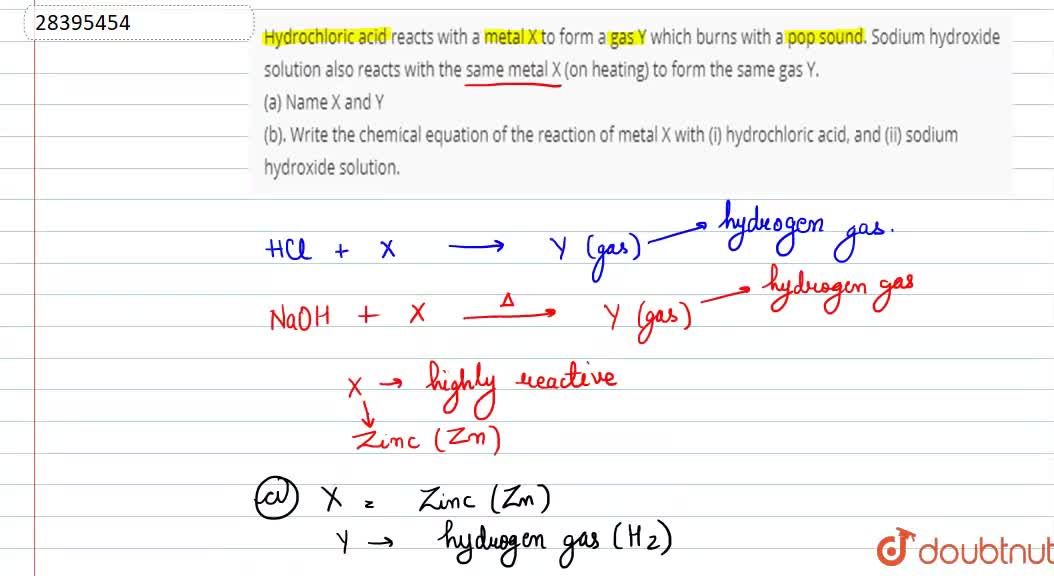 28395454
Hydrochloric acid reacts with a metal X to form a gas Y which burns with a pop sound. Sodium hydroxide
solution also reacts with the same metal X (on heating) to form the same gas Y.
(a) Name X and Y
(b). Write the chemical equation of the reaction of metal X with (i) hydrochloric acid, and (ii) sodium
hydroxide solution.
HCl + X → Y (gas) → hydrogen gas.
NaOH + X Δ → Y (gas) → hydrogen gas
X → highly reactive
↓
Zinc (Zn)
(a) X = Zinc (Zn)
Y → hydrogen gas (H2)
doubtnut